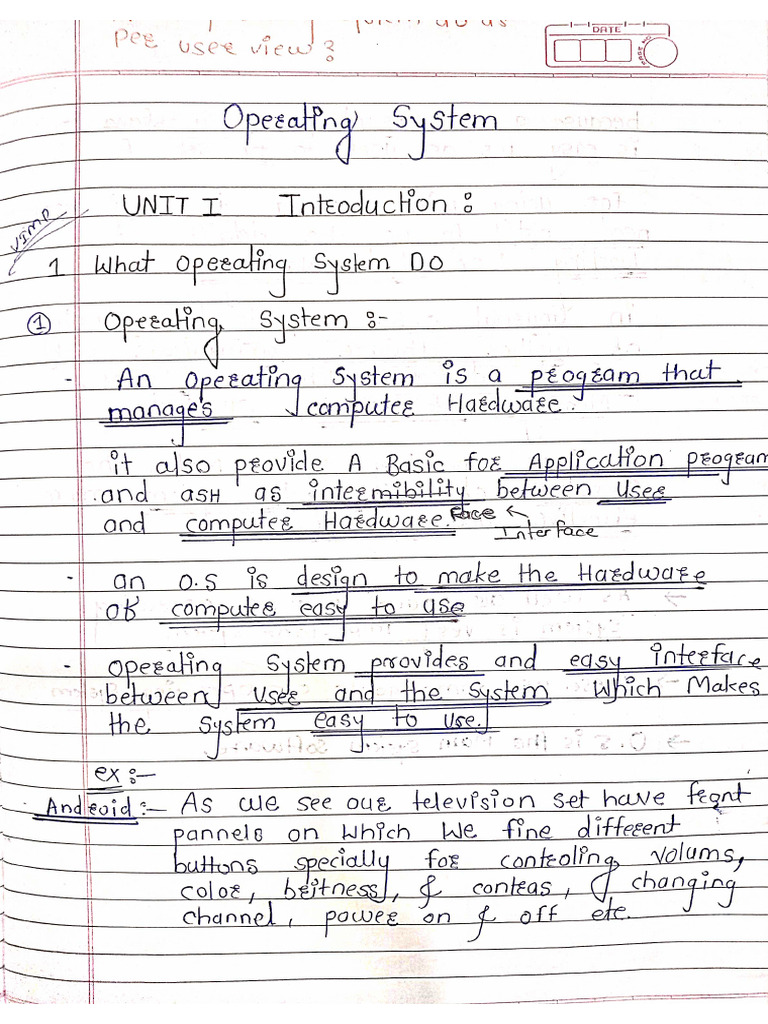 as
Per user view?
DATE
Operating System
UNIT I Introduction :
VIMP
1 What Operating System DO
① Operating System :-
- An Operating System is a program that
manages computer Hardware.
it also provide A Basic for Application program
and ASH as intermibility between User
and computer Hardware. Face ←
Interface
- an O.S is design to make the Hardware
of computer easy to use
- Operating System provides and easy interface
between User and the System Which Makes
the System easy to use.
ex :-
Android :- As we see our television set have front
pannels on which We fine different
buttons specially for controling volums,
color, britness, & contras, & changing
channel, power on & off etc.